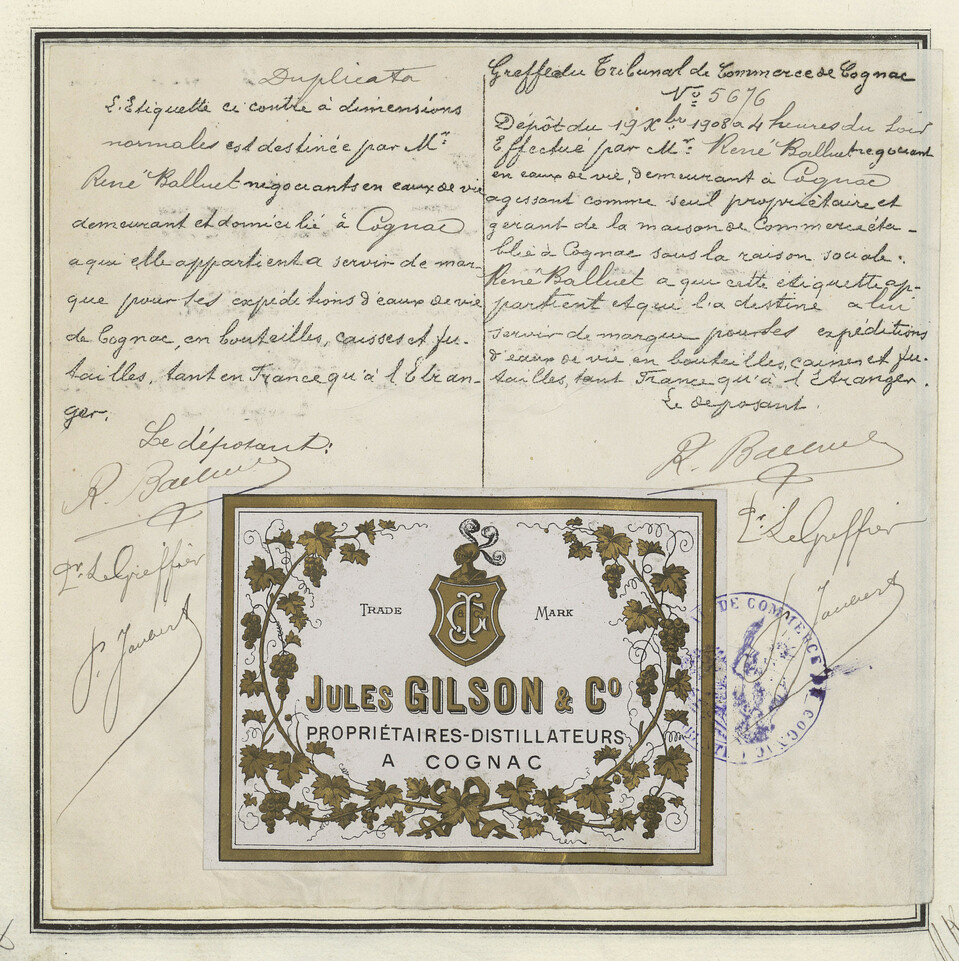 Duplicata
L'Etiquette ci contre à dimensions
normales est destinée par Mr
René Balluet négociants en eaux de vie
demeurant et domicilié à Cognac
a qui elle appartient a servir de mar-
que pour ses expéditions d'eaux de vie
de Cognac, en bouteilles, caisses et fu-
tailles, tant en France qu'à l'Etran-
ger.
Le déposant:
R. Balluet
Pr. Le Greffier
P. Jaubert
Greffe du Tribunal de Commerce de Cognac
No 5676
Dépôt du 19 Xbre 1908 a 4 heures du soir
Effectué par Mr. René Balluet negociant
en eaux de vie, demeurant à Cognac
agissant comme seul propriétaire et
gerant de la maison de Commerce éta-
blie à Cognac sous la raison sociale:
René Balluet a qui cette étiquette ap-
partient et qui l'a destine a lui
servir de marque pour ses expéditions
d'eaux de vie en bouteilles, caisses et fu-
tailles, tant France qu'à l'Etranger.
Le deposant.
R. Balluet
Pr. Le Greffier
Jaubert
TRADE MARK
JG
JULES GILSON & Co
PROPRIÉTAIRES-DISTILLATEURS
A COGNAC
DE COMMERCE DE COGNAC